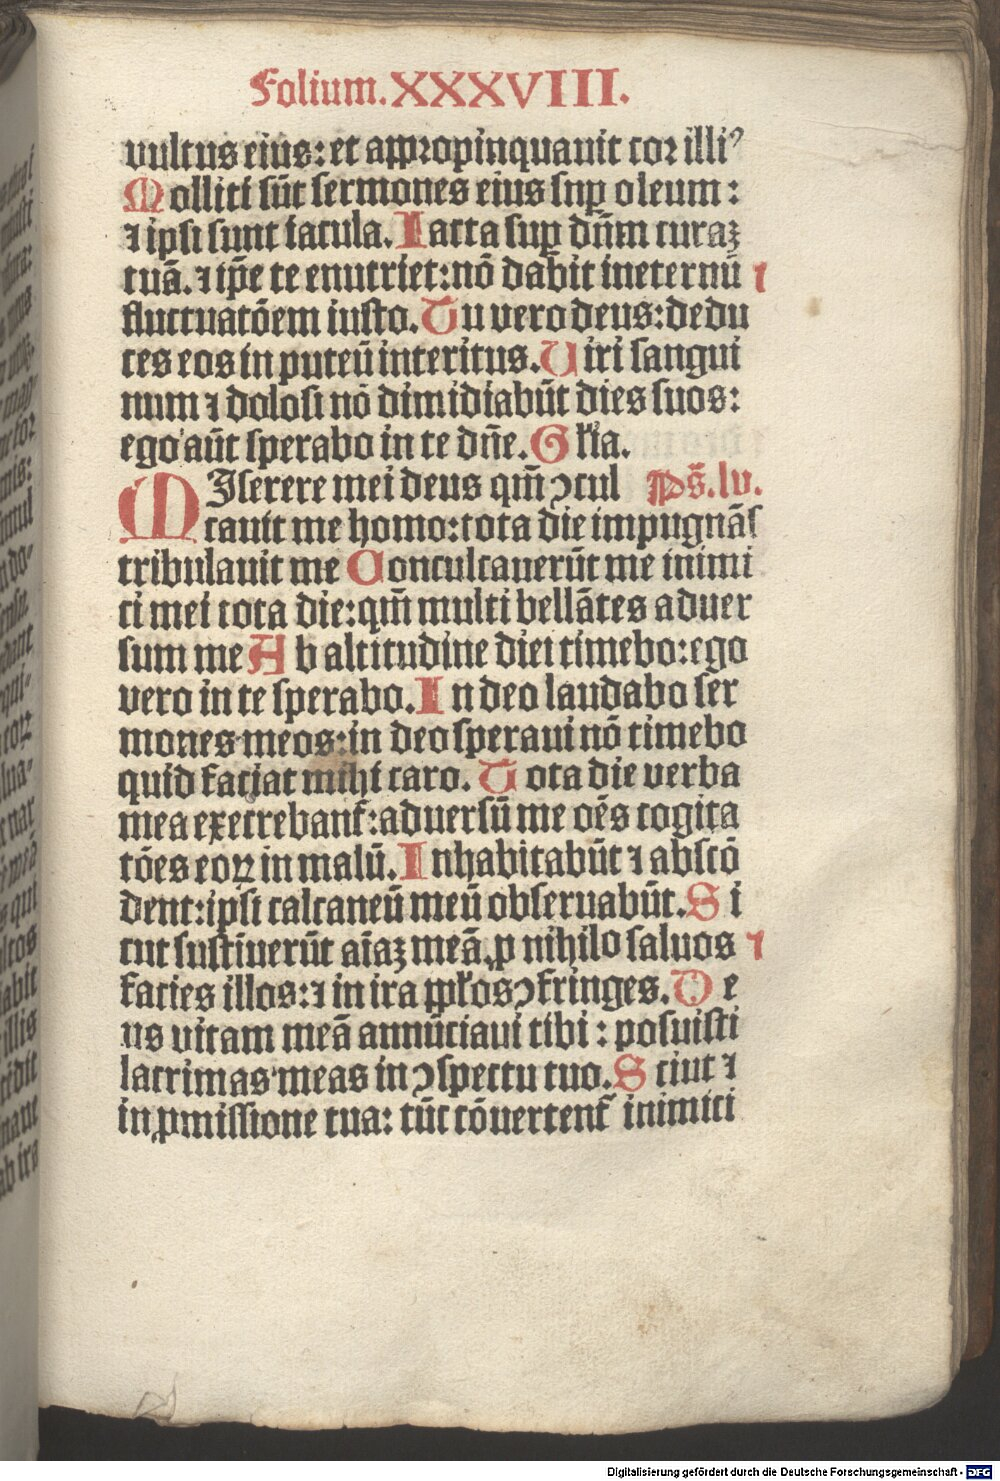 Folium.XXXVIII.
vultus eius: et appꝛopinquauit coꝛ illiꝰ
Molliti sūt sermones eius suꝑ oleum:
⁊ ipsi sunt iacula. Iacta suꝑ dn̄m curaꝫ
tuā. ⁊ ip̄e te enutriet: nō dabit ineternū
fluctuatōem iusto. Tu vero deus: dedu
ces eos in puteū interitus. Uiri sangui
num ⁊ dolosi nō dimidiabūt dies suos:
ego aūt sperabo in te dn̄e. Gl'ia.
MIserere mei deus qm̄ ꝯcul Ps̄.lv.
cauit me homo: tota die impugnās
tribulauit me Conculcauerūt me inimi
ci mei tota die: qm̄ multi bellātes aduer
sum me Ab altitudine diei timebo: ego
vero in te sperabo. In deo laudabo ser
mones meos: in deo speraui nō timebo
quid faciat mihi caro. Tota die verba
mea execrebant᷑: aduersū me oēs cogita
tōes eoꝝ in malū. Inhabitabūt ⁊ abscō
dent: ipsi calcaneū meū obseruabūt. Si
cut sustinuerūt aīaꝫ meā, ꝓ nihilo saluos
facies illos: ⁊ in ira ppl'os ꝯfringes. De
us vitam meā annūciaui tibi: posuisti
lacrimas meas in ꝯspectu tuo. Sicut ⁊
in ꝓmissione tua: tūc cōuertent᷑ inimici
Digitalisierung gefördert durch die Deutsche Forschungsgemeinschaft - DFG